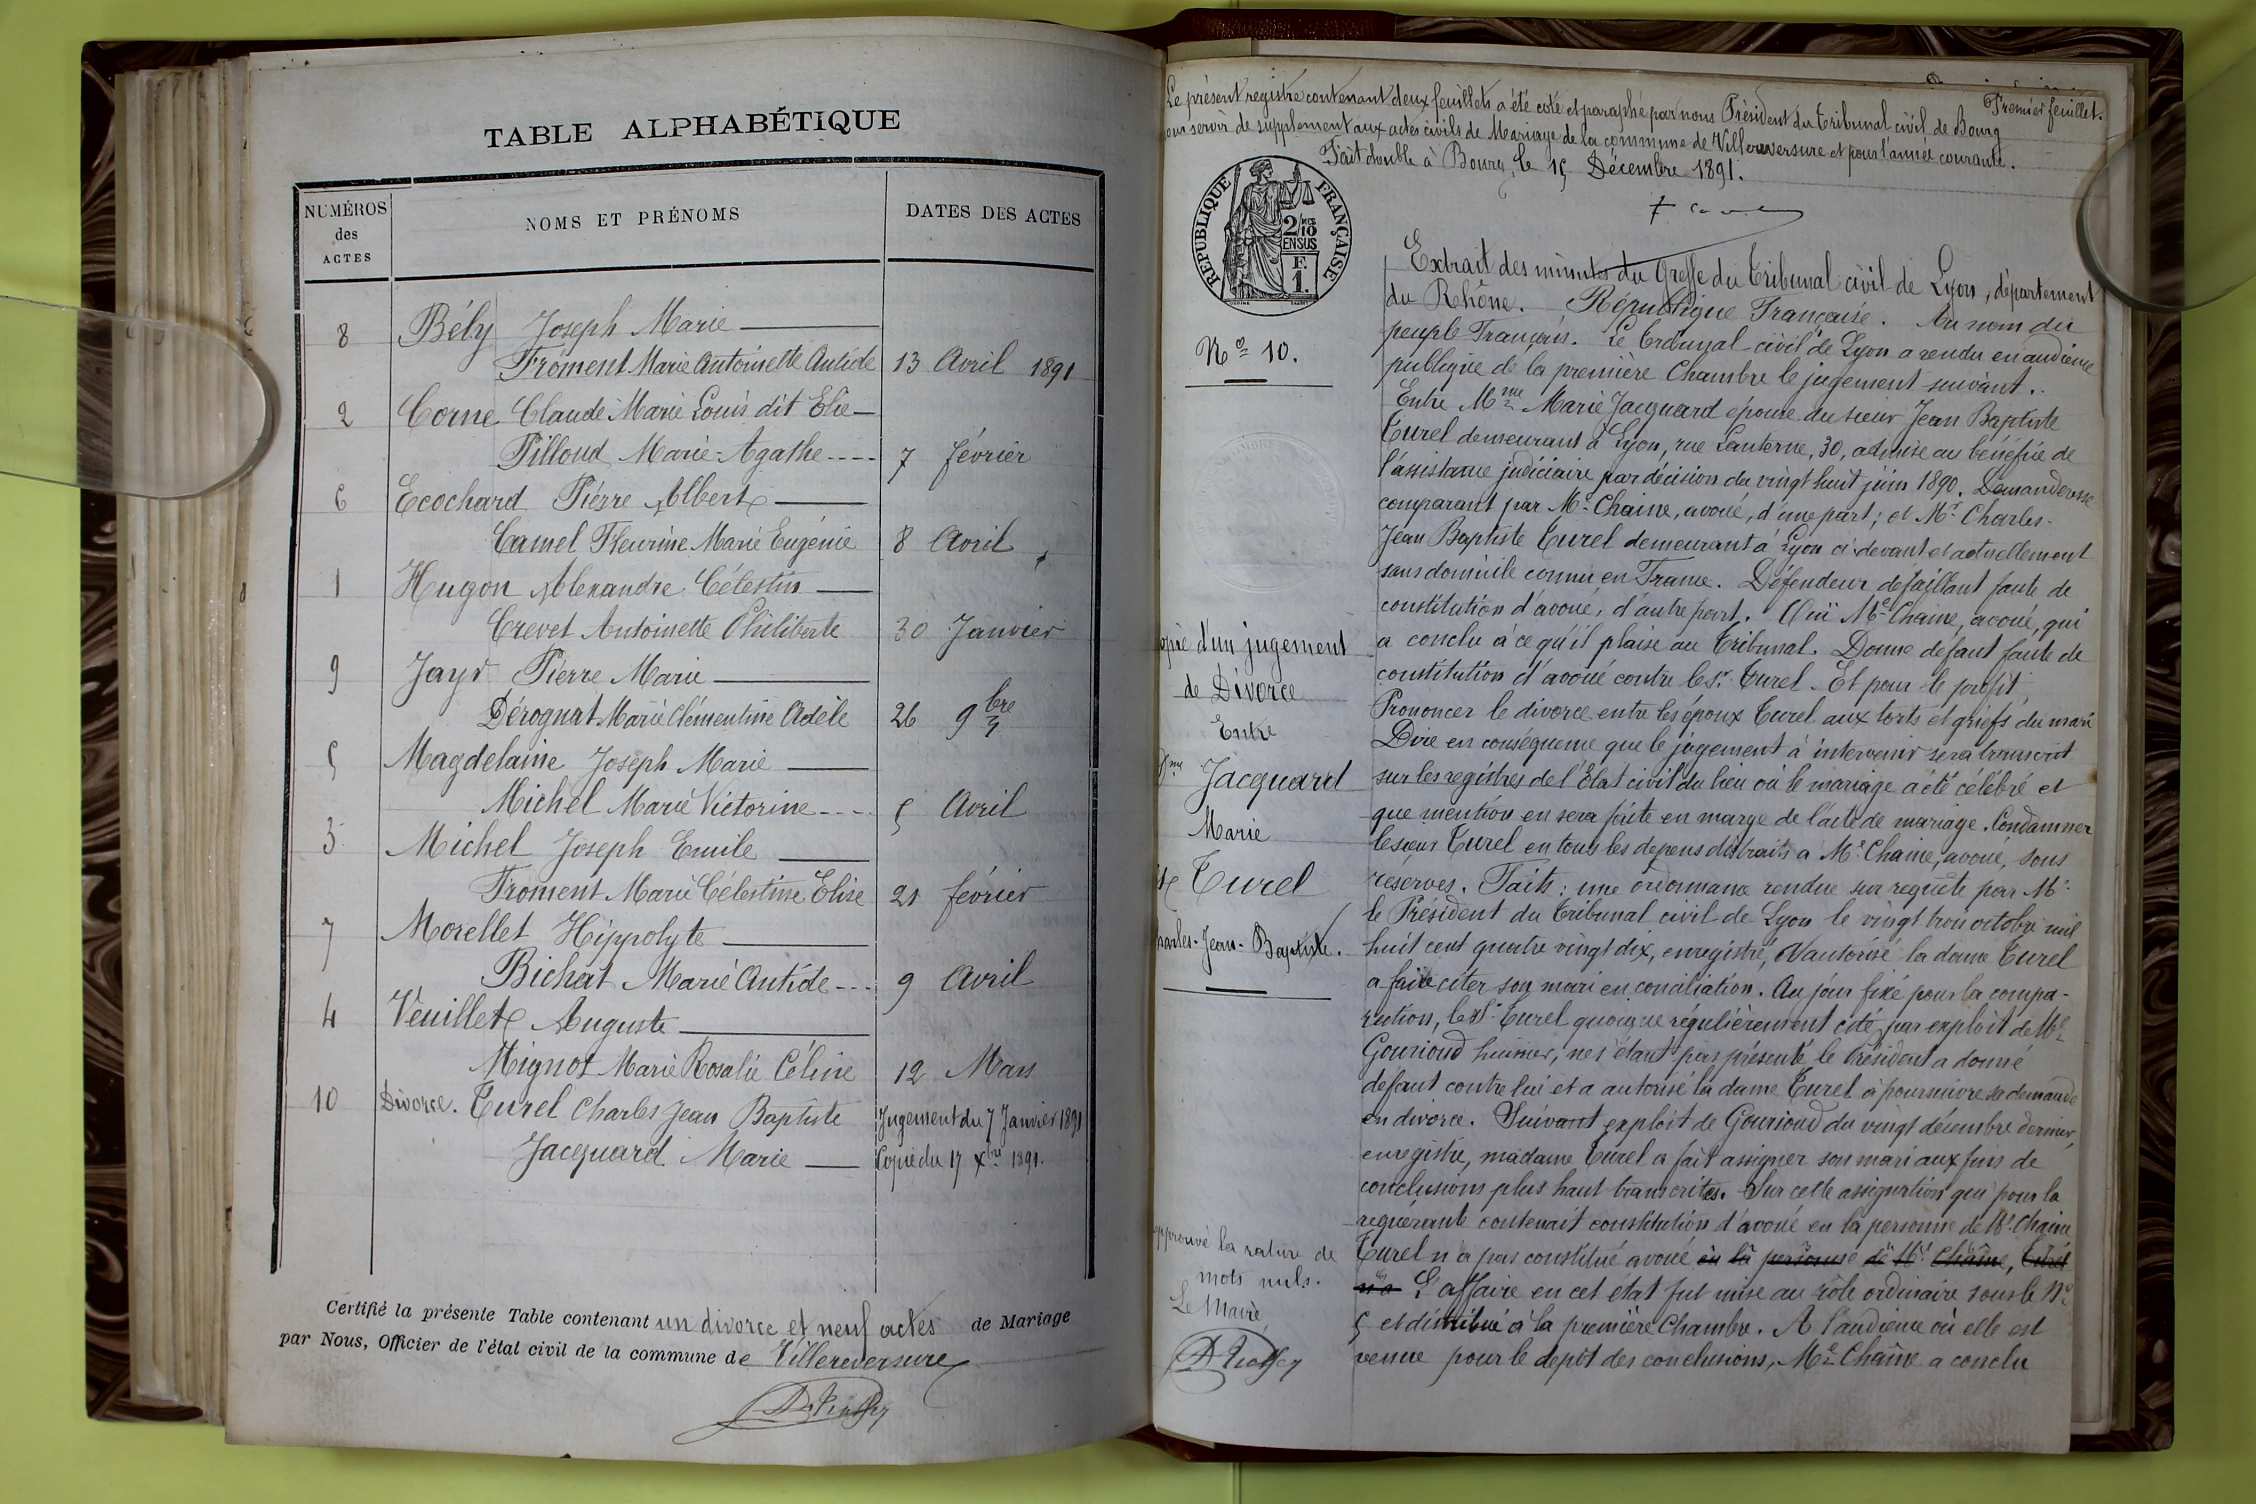 TABLE ALPHABÉTIQUE
NUMÉROS des ACTES
NOMS ET PRÉNOMS
DATES DES ACTES
8 Bély Joseph Marie
Froment Marie Antoinette Antide 13 Avril 1891
2 Corne Claude Marie Louis dit Elie
Pilloud Marie-Agathe 7 février
6 Ecochard Pierre Albert
Camel Fleurine Marie Eugénie 8 Avril
1 Hugon Alexandre Célestin
Crevet Antoinette Philiberte 30 Janvier
9 Jayr Pierre Marie
Dérognat Marie Clémentine Adèle 26 9bre
5 Magdelaine Joseph Marie
Michel Marie Victorine 5 Avril
3 Michel Joseph Emile
Froment Marie Célestine Elise 21 février
7 Morellet Hippolyte
Bichat Marie Antide 9 Avril
4 Veuillet Auguste
Mignot Marie Rosalie Céline 12 Mars
10 Divorce. Turel Charles Jean Baptiste Jugement du 7 Janvier 1891
Jacquard Marie Copie du 17 Xbre 1891.
Certifié la présente Table contenant un divorce et neuf actes de Mariage
par Nous, Officier de l'état civil de la commune de Villereversure
Premier feuillet.
Le présent registre contenant deux feuillets a été coté et paraphé par nous Président du Tribunal civil de Bourg
pour servir de supplément aux actes civils de Mariage de la commune de Villereversure et pour l'année courante.
Fait double à Bourg, le 15 Décembre 1891.
RÉPUBLIQUE FRANÇAISE
2/10 EN SUS
F. 1.
No 10.
Copie d'un jugement
de Divorce
Entre
Jacquard
Marie
et Turel
Charles-Jean-Baptiste.
Approuvé la rature de
mots nuls.
Le Maire
Extrait des minutes du Greffe du Tribunal civil de Lyon, département
du Rhône. République Française. Au nom du
peuple Français. Le Tribunal civil de Lyon a rendu en audience
publique de la première Chambre le jugement suivant.
Entre Mme Marie Jacquard épouse du sieur Jean Baptiste
Turel demeurant à Lyon, rue Lanterne, 30, admise au bénéfice de
l'assistance judiciaire par décision du vingt huit juin 1890. Demanderesse
comparant par Me Chaine, avoué, d'une part; et Mr Charles-
Jean Baptiste Turel demeurant à Lyon ci-devant et actuellement
sans domicile connu en France. Défendeur défaillant faute de
constitution d'avoué, d'autre part. Ouï Me Chaine, avoué, qui
a conclu à ce qu'il plaise au Tribunal. Donner défaut faute de
constitution d'avoué contre le Sr Turel. Et pour le profit
Prononcer le divorce entre les époux Turel aux torts et griefs du mari
Dire en conséquence que le jugement à intervenir sera transcrit
sur les registres de l'Etat civil du lieu où le mariage a été célébré et
que mention en sera faite en marge de l'acte de mariage. Condamner
le sieur Turel en tous les dépens distraits à Me Chaine, avoué, sous
réserves. Faits: une ordonnance rendue sur requête par Mr
le Président du Tribunal civil de Lyon le vingt trois octobre mil
huit cent quatre vingt dix, enregistré, a autorisé la dame Turel
a faire citer son mari en conciliation. Au jour fixé pour la compa-
rution, le Sr Turel quoique régulièrement cité, par exploit de Me
Gourioud huissier, ne s'étant pas présenté, le Président a donné
défaut contre lui et a autorisé la dame Turel à poursuivre sa demande
en divorce. Suivant exploit de Gourioud du vingt décembre dernier,
enregistré, madame Turel a fait assigner son mari aux fins de
conclusions plus haut transcrites. Sur cette assignation qui pour la
requérante contenait constitution d'avoué en la personne de Me Chaine
Turel n'a pas constitué avoué en la personne de Me Chaine, Turel
n'a L'affaire en cet état fut mise au rôle ordinaire sous le No
5 et distribué à la première Chambre. A l'audience où elle est
venue pour le dépôt des conclusions, Me Chaine a conclu